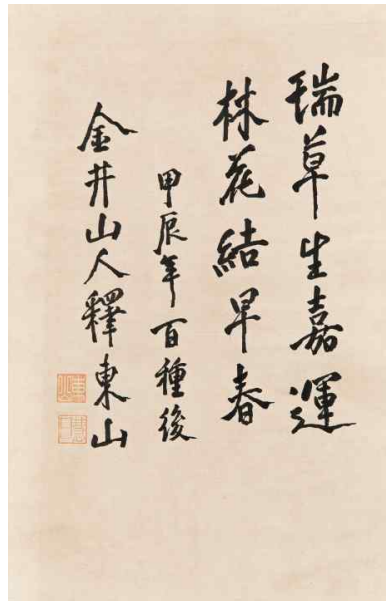 瑞草生嘉運
林花結早春
甲辰年百種後
金井山人釋東山